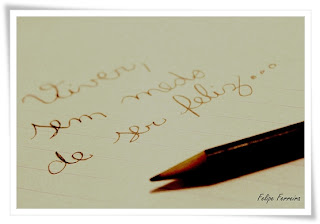 Viver,
sem medo
de ser feliz...
Felipe Ferreira